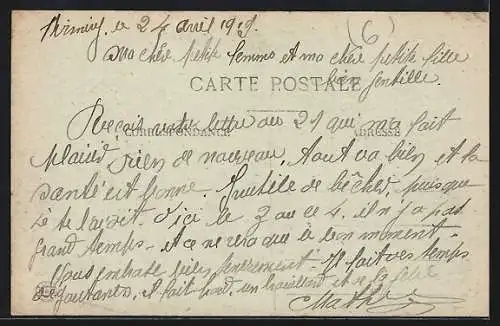 Firminy, le 24 avril 1919.
(6)
Ma chère petite femme et ma chère petite fille
bien gentille.
CARTE POSTALE
Reçois votre lettre du 21 qui m'a fait
CORRESPONDANCE ADRESSE
plaisir rien de nouveau, tout va bien et la
santé est bonne. Inutile de bêcher puisque
je te le dit. D'ici le 3 au ce 4. il n'y a pas
grand temps - et ce ne sera que le bon moment.
Vous embrasse bien tendrement - Il fait un temps
dégoutant, il fait froid, un brouillard et de la pluie